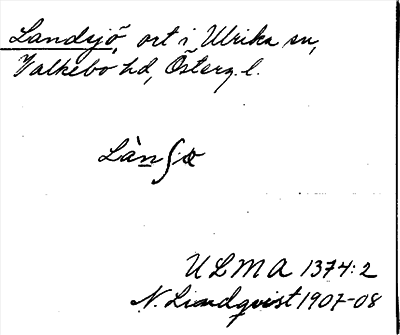 Landsjö, ort i Ulrika sn,
Valkebo hd, Österg. l.
Lànʃæ
ULMA 1374:2
N. Lindqvist 1907-08